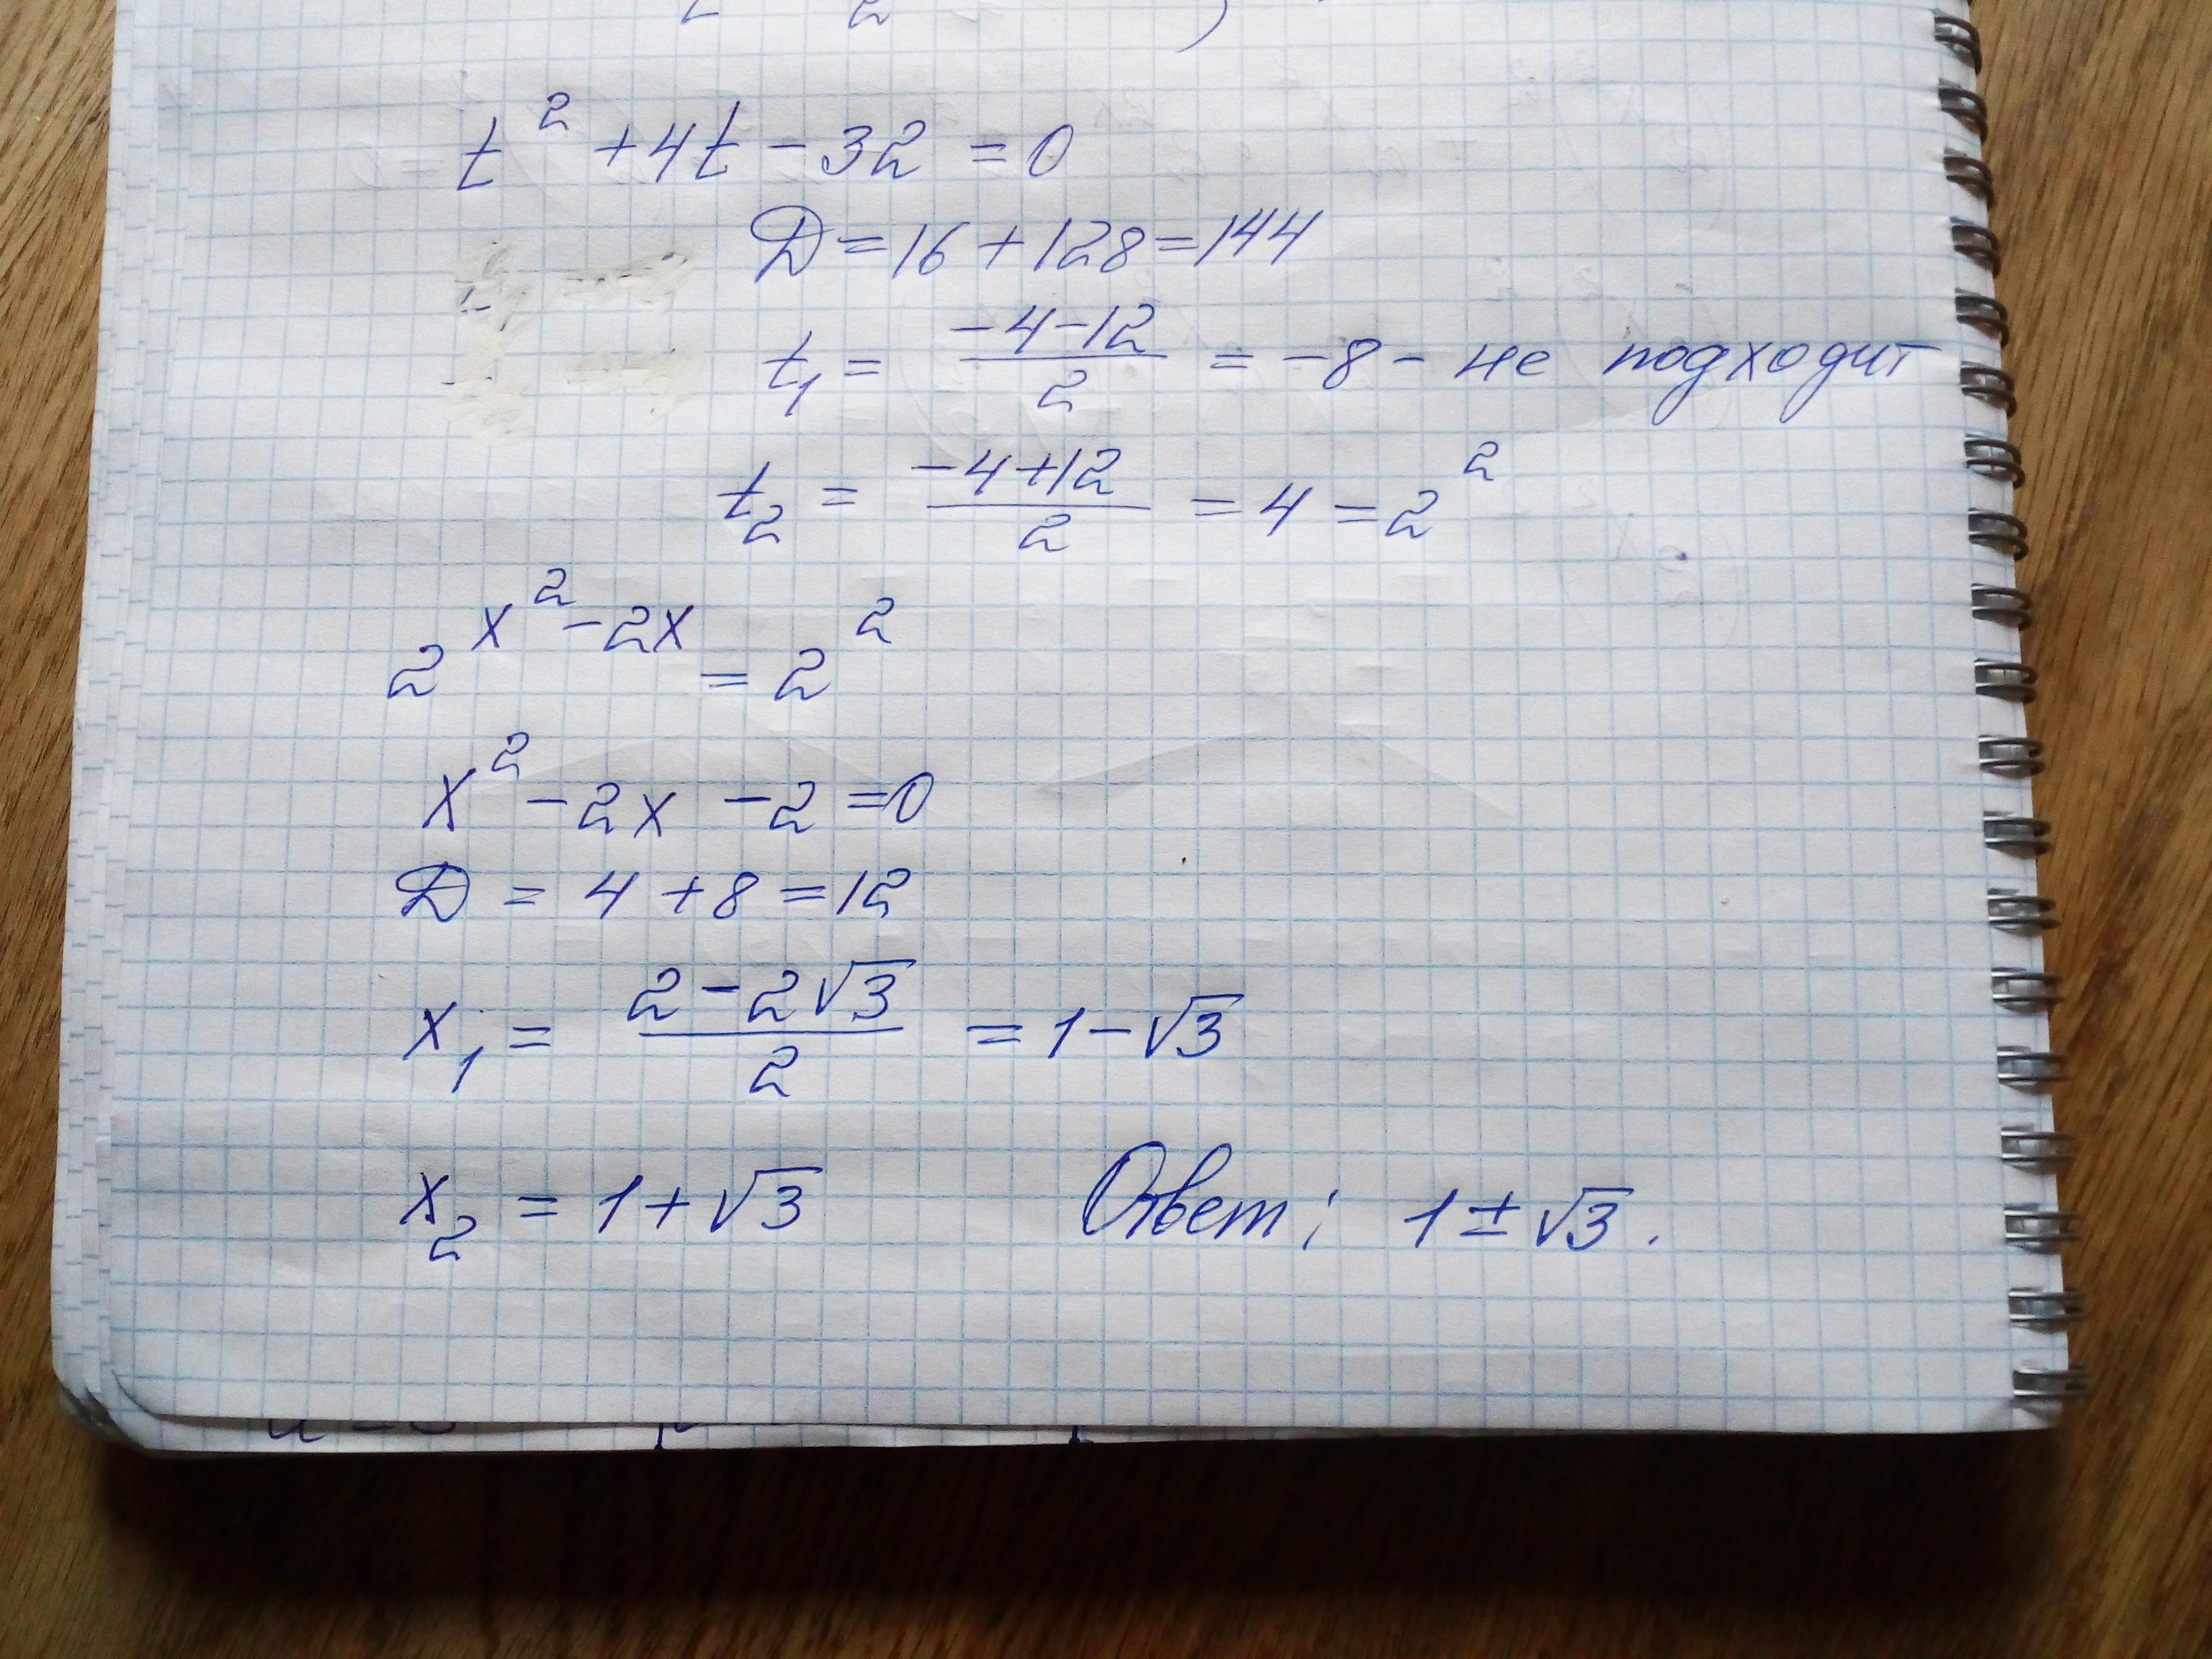 t² + 4t - 32 = 0
D = 16 + 128 = 144
t₁ = (-4-12)/2 = -8 - не подходит
t₂ = (-4+12)/2 = 4 = 2²
2^(x²-2x) = 2²
x² - 2x - 2 = 0
D = 4 + 8 = 12
x₁ = (2-2√3)/2 = 1-√3
x₂ = 1+√3
Ответ: 1±√3.